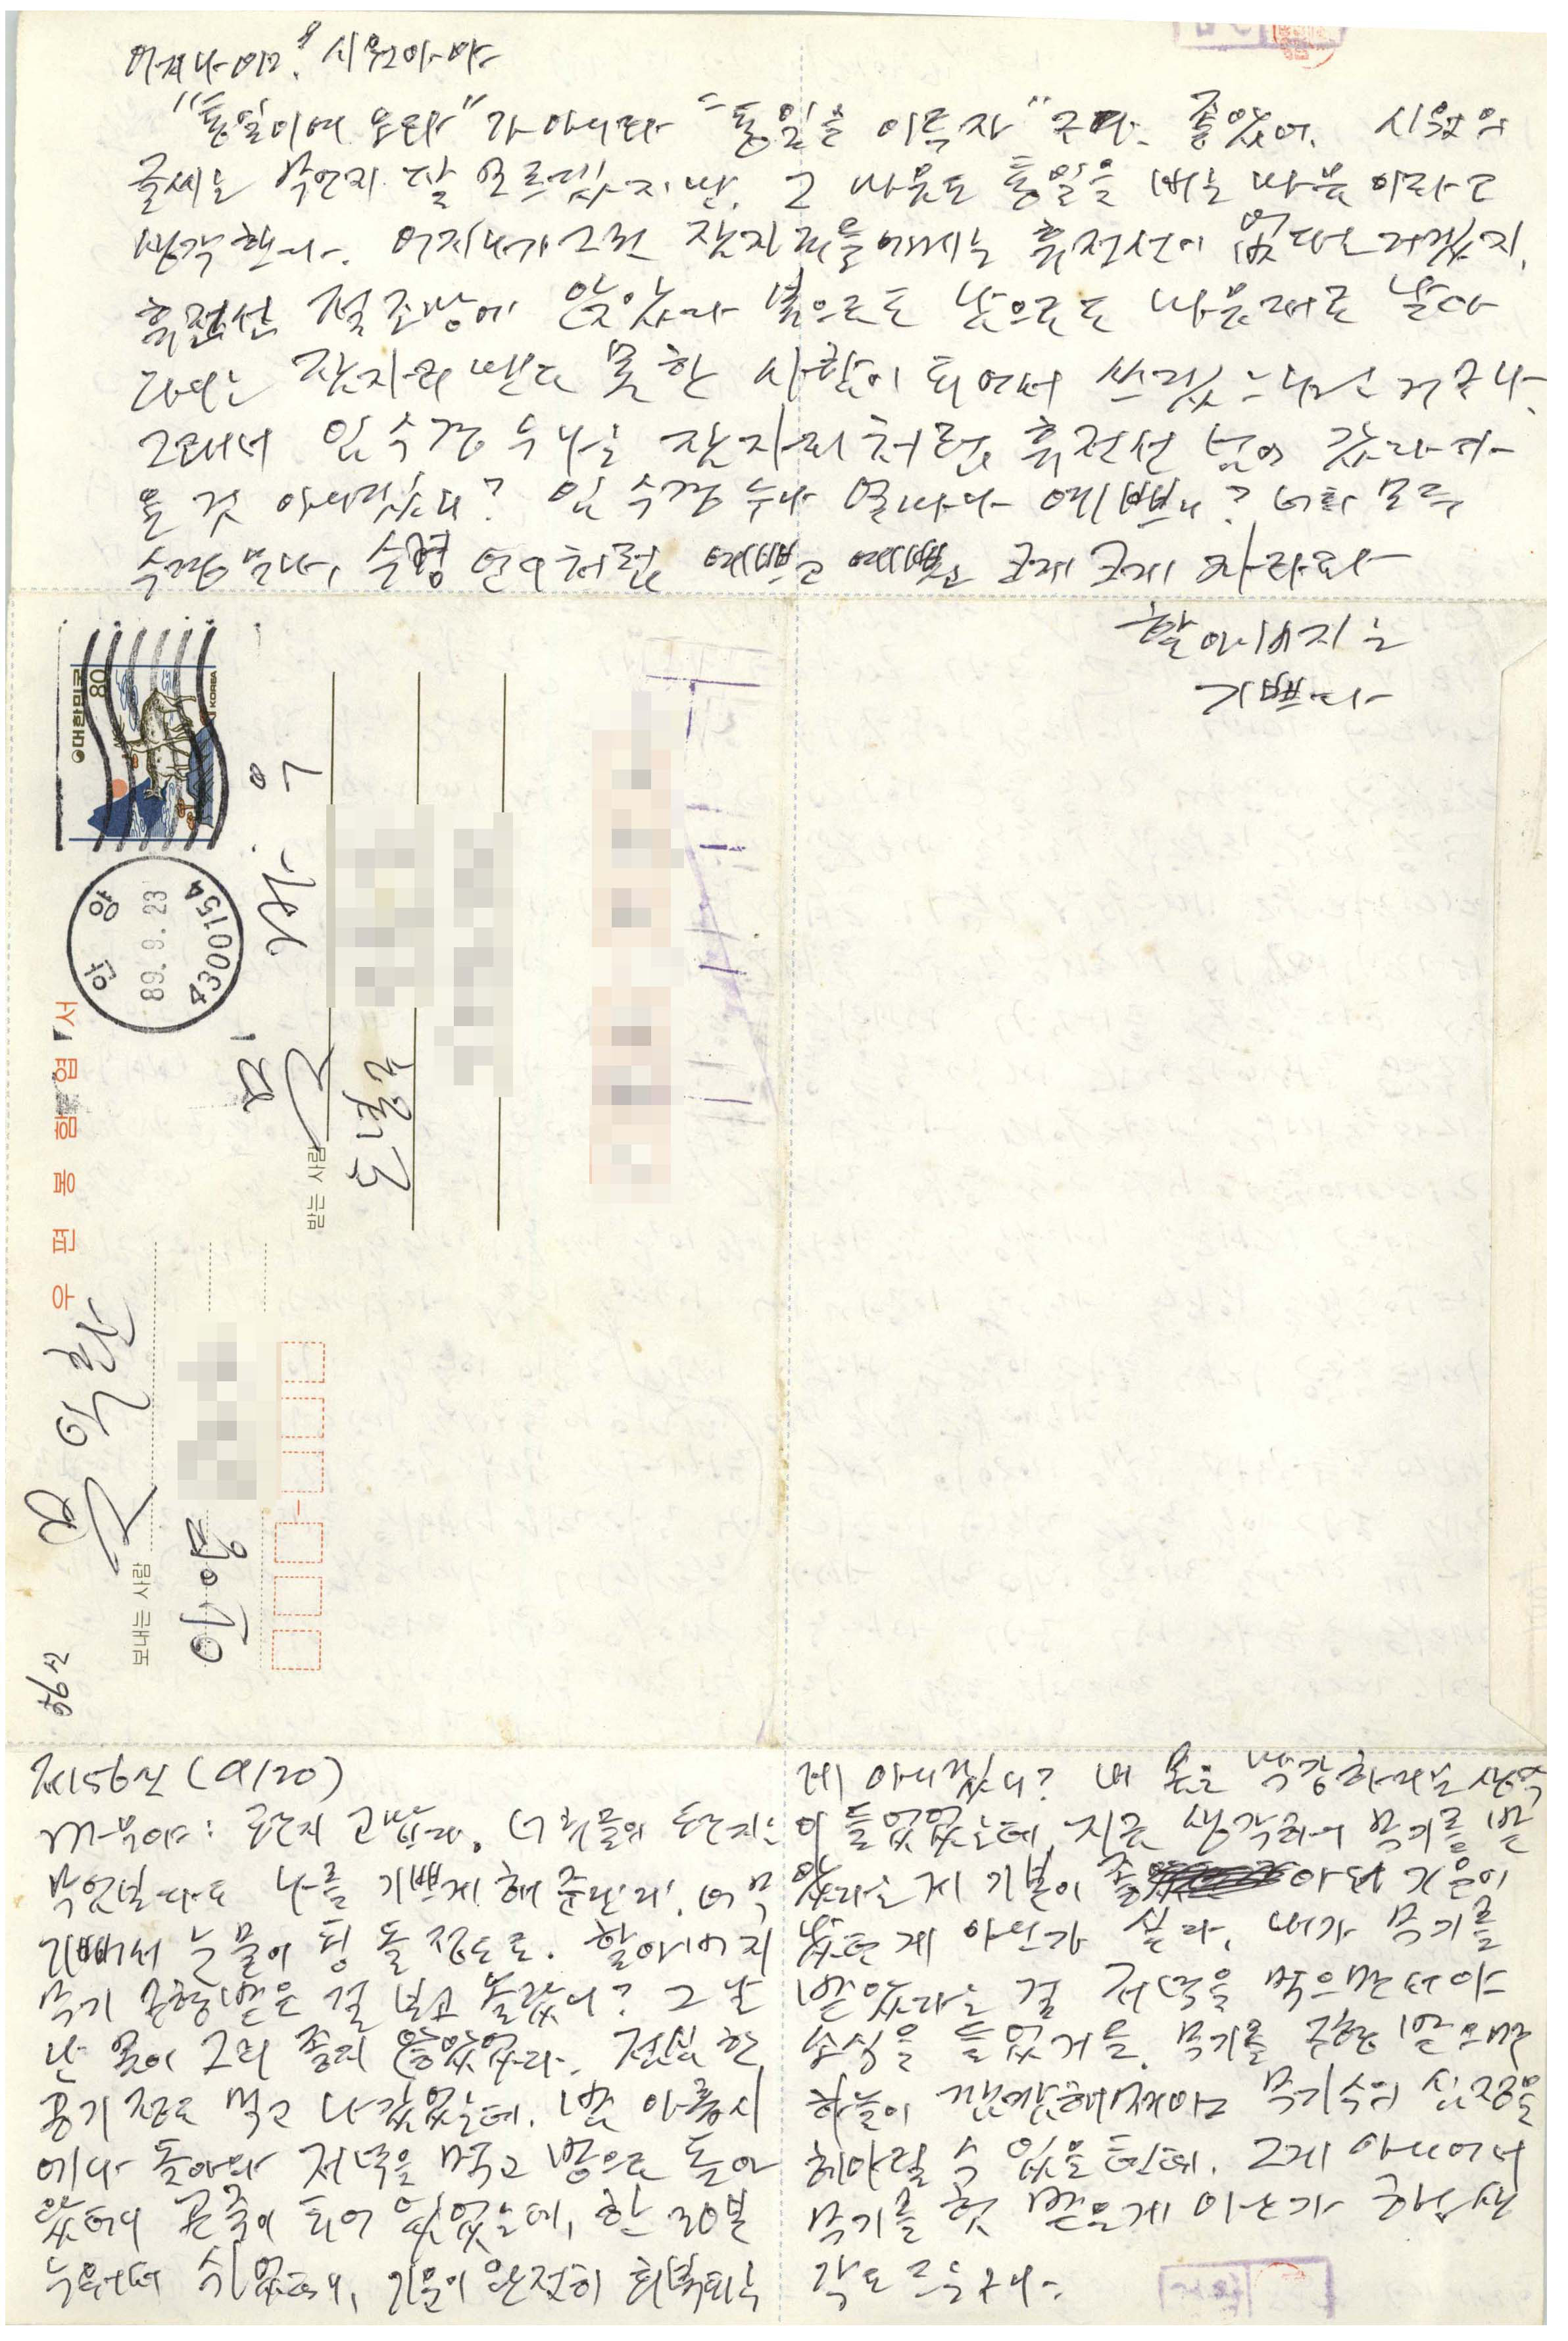 어쩌나 바우, 시원아야
"통일이여 오라"가 아니라 "통일을 이루자"구나. 좋았어. 시원의
글씨는 무언지 잘 모르겠지만, 그 마음도 통일을 비는 마음이라고
생각한다. 어저내가 그린 잠자리들에게는 휴전선이 없다는 거겠지.
휴전선 철조망에 앉았다 북으로도 남으로도 마음대로 날아
다니는 잠자리만도 못한 사람이 되어서 쓰겠느냐는 거구나.
그래서 임수경 누나는 잠자리처럼 휴전선 넘어 갔다가
온 것 아니겠니? 임수경 누나 얼마나 예쁘니? 너희 모두
수경 누나, 수경 언니처럼 예쁘고 예쁘고 크게 크게 자라라
할아버지는
기쁘다
대한민국
80
KOREA
안양
89.9.23
4300154
우편봉함엽서
보내는 사람
문익환
안양
156신
받는 사람
문
귀하
제156신 (9/20)
문
: 편지 고맙다. 너희들의 편지는
무엇보다도 나를 기쁘게 해 준단다. 너무
기뻐서 눈물이 핑 돌 정도로. 할아버지
무기 구형받은 걸 보고 놀랐니? 그날
난 몸이 그리 좋지 않았었다. 점심 한
공기 정도 먹고 나갔었는데, 밤 아홉시
에나 돌아와 저녁을 먹고 방으로 돌아
왔더니 곤죽이 되어 있었는데, 한 30분
누워서 쉬었더니, 기운이 완전히 회복되는
게 아니겠니? 내 몸은 막강하다는 생각
이 들었었는데, 지금 생각하니 무기를 받
았다는 게 기분이 좋아서 기운이
났던 게 아닌가 싶다. 내가 무기를
받았다는 걸 저녁을 먹으면서야
소식을 들었거든. 무기를 구형 받으면
하늘이 깜깜해져야 무기수의 심정을
헤아릴 수 있을 텐데. 그게 아니어서
무기를 헛 받은게 아닌가 하는 생
각도 드는구나.